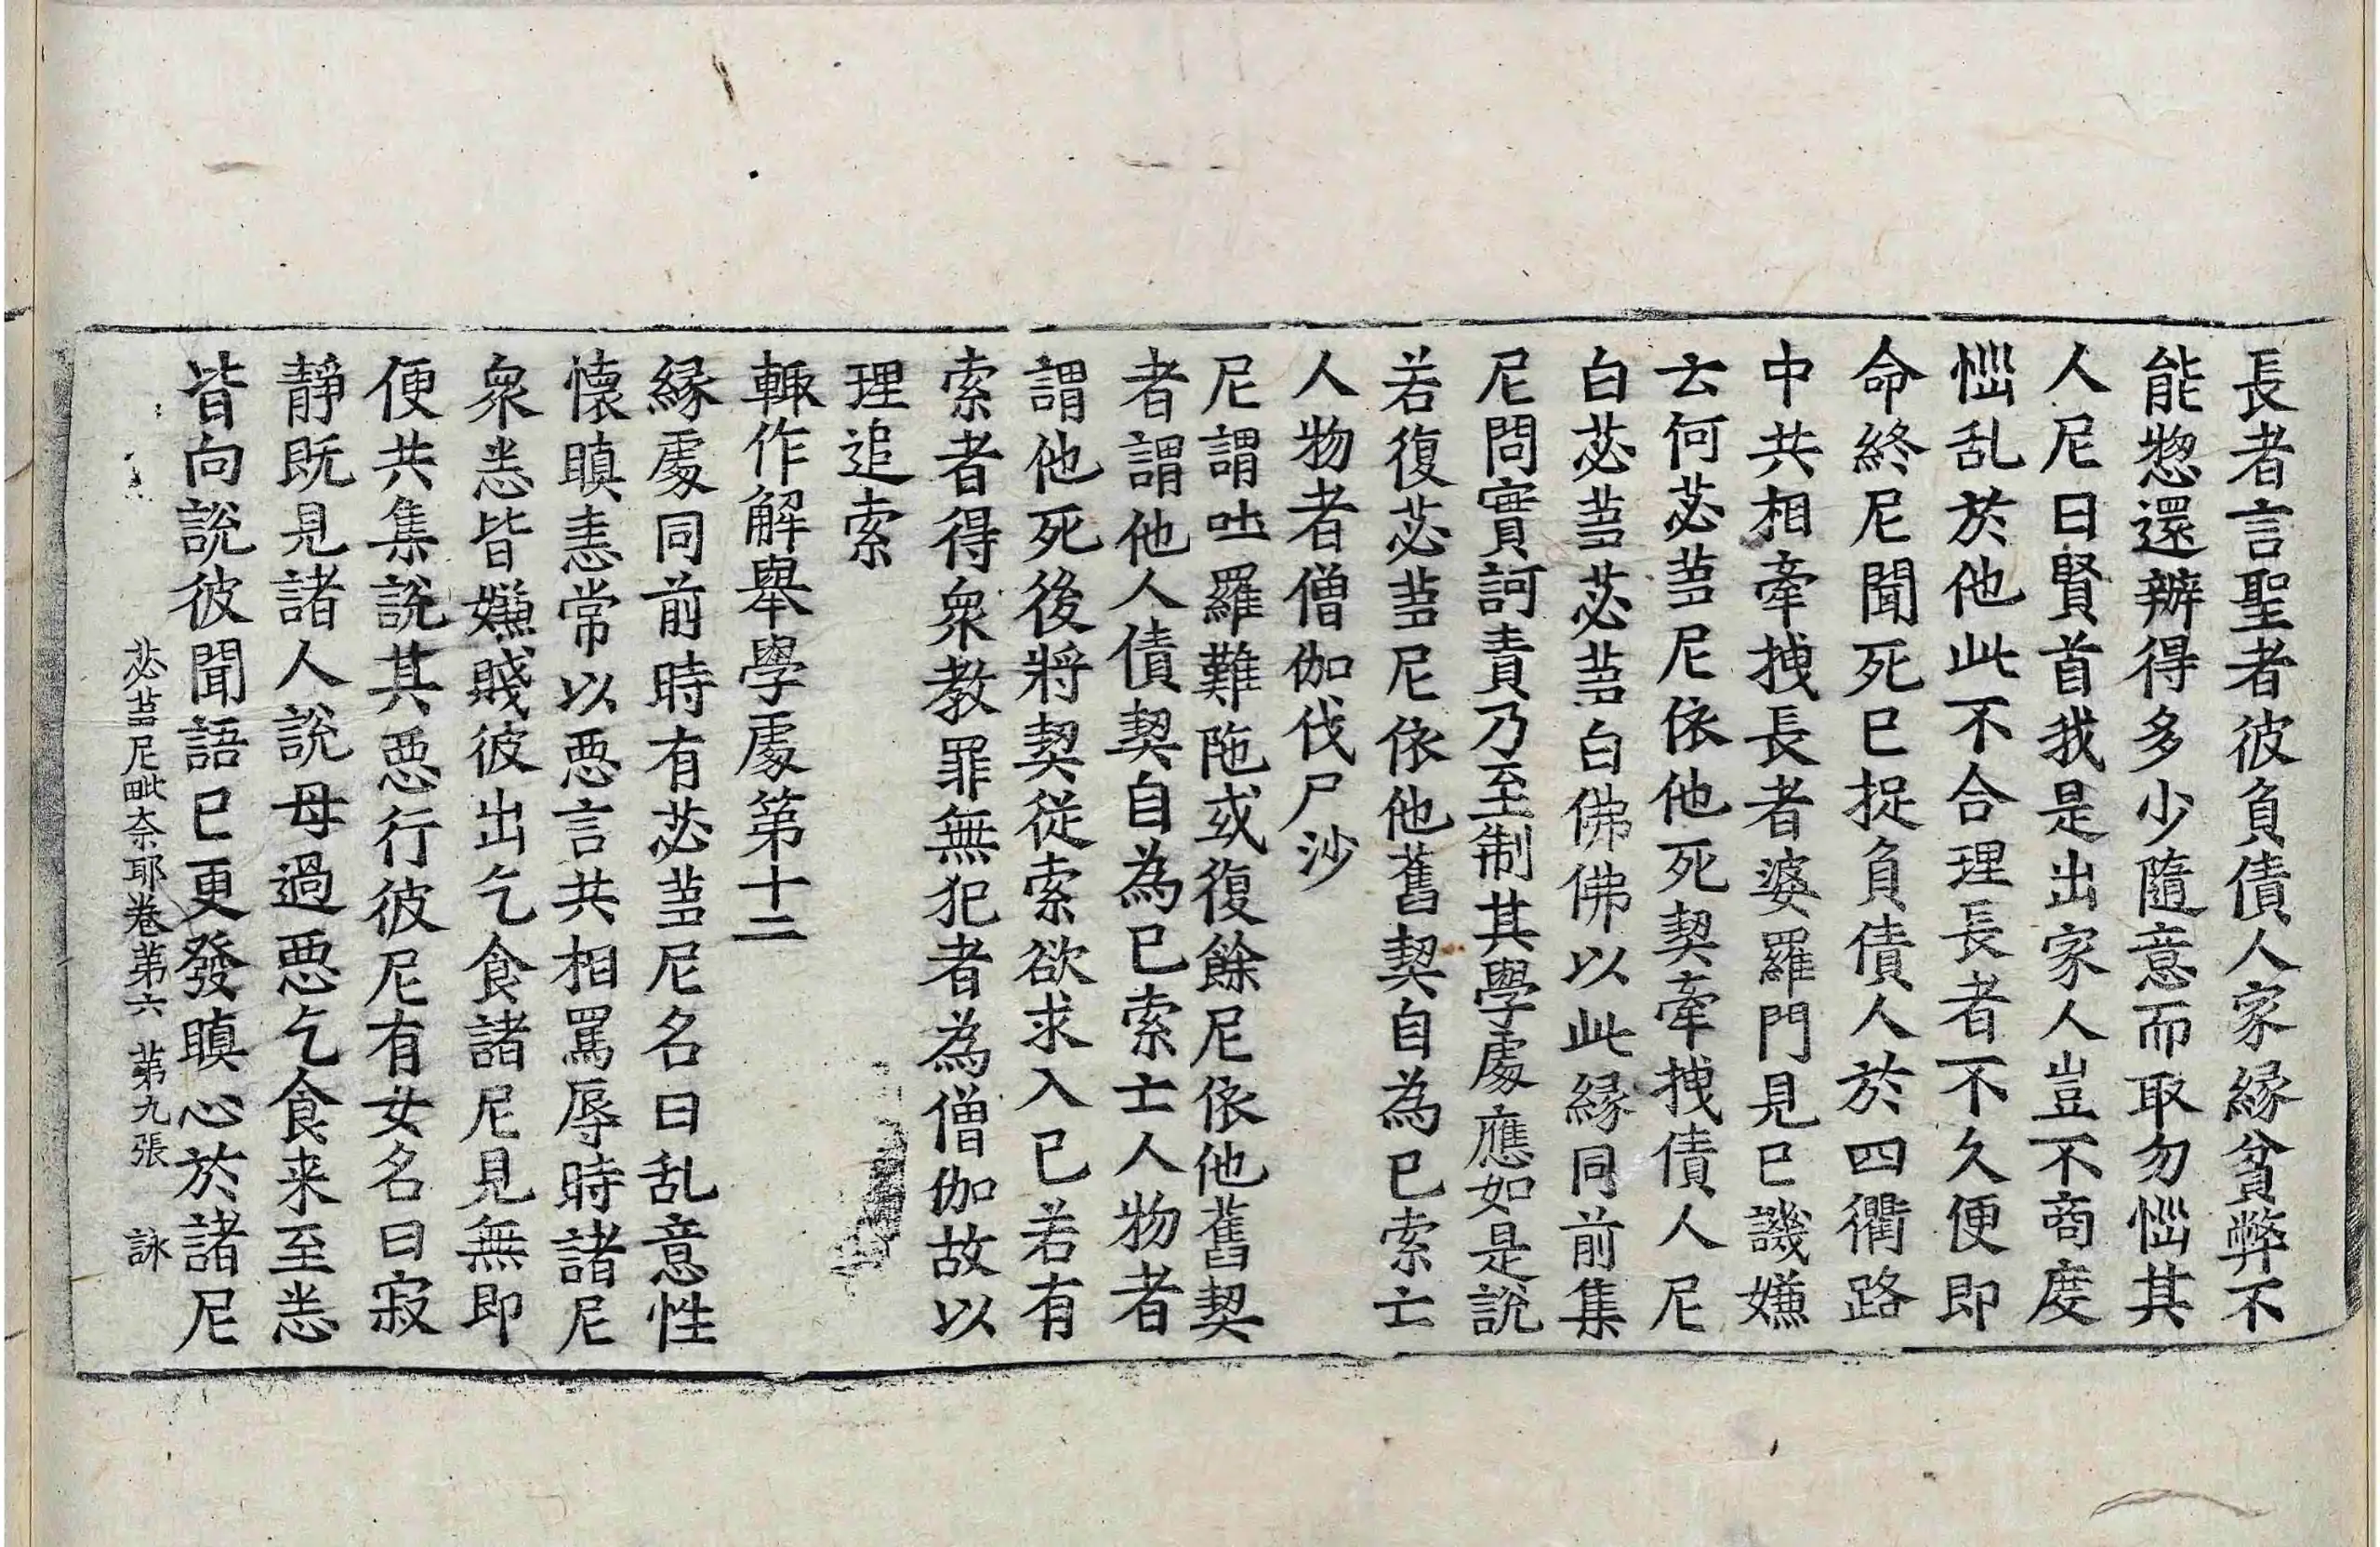 長者言聖者彼負債人家緣貧弊不
能惣還辦得多少隨意而取勿惱其
人尼曰賢首我是出家人豈不商度
惱乱於他此不合理長者不久便即
命終尼聞死已捉負債人於四衢路
中共相牽拽長者婆羅門見已譏嫌
云何苾蒭尼依他死契牽拽債人尼
白苾蒭苾蒭白佛佛以此緣同前集
尼問實訶責乃至制其學處應如是說
若復苾蒭尼依他舊契自為己索亡
人物者僧伽伐尸沙
尼謂吐羅難陁或復餘尼依他舊契
者謂他人債契自為己索亡人物者
謂他死後將契從索欲求入己若有
索者得衆教罪無犯者為僧伽故以
理追索
輙作解舉學處第十二
緣處同前時有苾蒭尼名曰乱意性
懷瞋恚常以惡言共相罵辱時諸尼
衆恙皆嫌賤彼出乞食諸尼見無即
便共集說其惡行彼尼有女名曰寂
靜既見諸人說母過惡乞食来至恙
皆向說彼聞語已更發瞋心於諸尼
苾蒭尼毗奈耶卷第六 第九張 詠